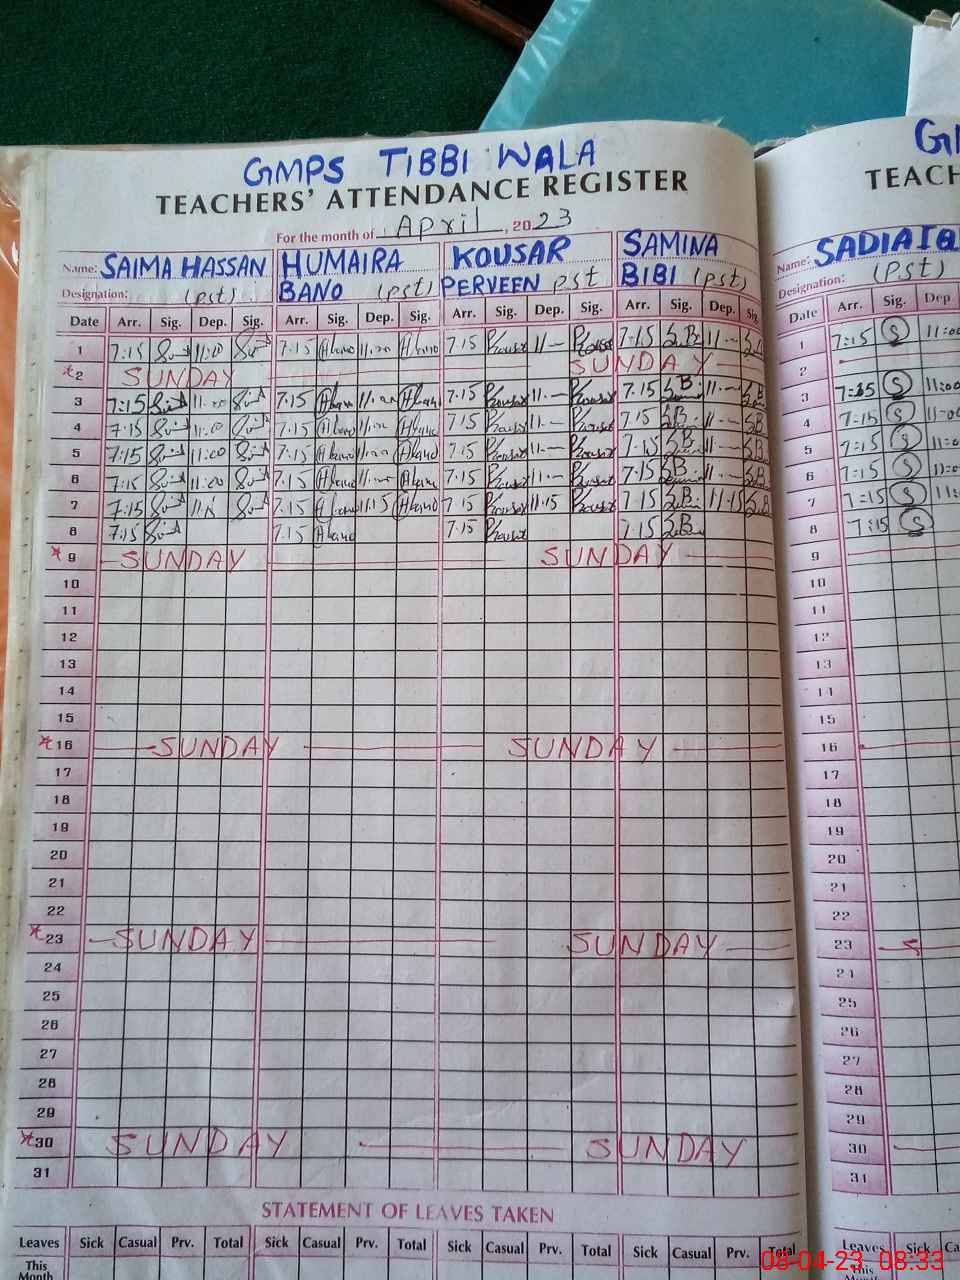 GMPS TIBBI WALA
TEACHERS' ATTENDANCE REGISTER
For the month of April, 2023
Name: SAIMA HASSAN HUMAIRA KOUSAR SAMINA
Designation: (Pst) BANO (pst) PERVEEN pst BIBI (pst)
Date Arr. Sig. Dep. Sig. Arr. Sig. Dep. Sig. Arr. Sig. Dep. Sig. Arr. Sig. Dep. Sig.
1 7:15 11:00 7:15 11:00 7:15 11— 7:15 11·—
*2 SUNDAY SUNDAY
3 7:15 11:00 7:15 11:00 7:15 11·— 7:15 11·—
4 7:15 11:00 7:15 11:00 7:15 11·— 7:15 11·—
5 7:15 11:00 7:15 11:00 7:15 11·— 7:15 11·—
6 7:15 11:00 7:15 11:00 7:15 11·— 7:15 11·—
7 7:15 7:15 11:15 7:15 11:15 7:15 11:15
8 7:15 7:15 7:15 7:15
*9 SUNDAY SUNDAY
10
11
12
13
14
15
*16 SUNDAY SUNDAY
17
18
19
20
21
22
*23 SUNDAY SUNDAY
24
25
26
27
28
29
*30 SUNDAY SUNDAY
31
STATEMENT OF LEAVES TAKEN
Leaves Sick Casual Prv. Total Sick Casual Prv. Total Sick Casual Prv. Total Sick Casual Prv. Total
This
Month
TEACH
Name: SADIA
Designation: (Pst)
Date Arr. Sig. Dep
1 7:15 S 11:00
2
3 7:15 S 11:00
4 7:15 S 11:00
5 7:15 S
6 7:15 S
7 7:15 S
8 7:15 S
9
10
11
12
13
14
15
16
17
18
19
20
21
22
23
24
25
26
27
28
29
30
31
Leaves Sick
This
08-04-23 08:33